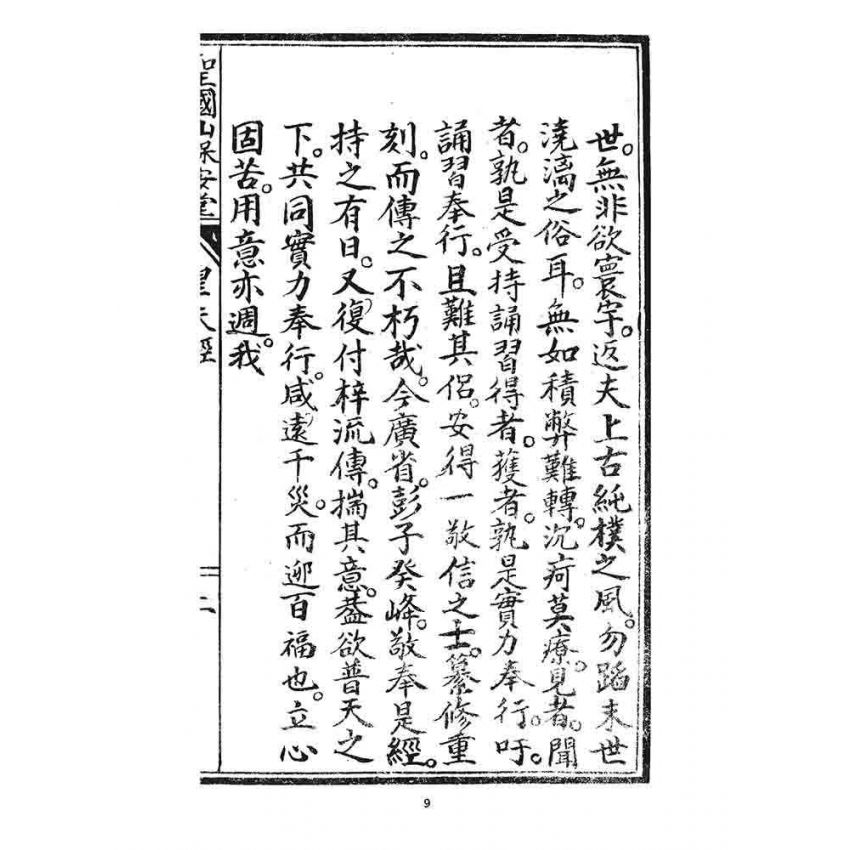 世。無非欲寰宇。返夫上古純樸之風。勿蹈末世
澆漓之俗耳。無如積弊難轉。沉疴莫療。見者。聞
者。孰是受持誦習得者。獲者。孰是實力奉行。吁。
誦習奉行。且難其侶。安得一敬信之士。纂修重
刻。而傳之不朽哉。今廣省。彭子癸峰。敬奉是經。
持之有日。又復付梓流傳。揣其意。蓋欲普天之
下。共同實力奉行。咸遠千災。而迎百福也。立心
固苦。用意亦週。我
聖國山保安堂 皇天經 二
9